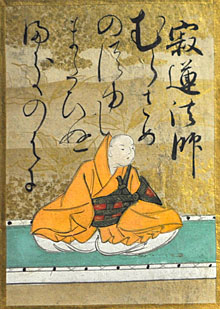 寂蓮法師
むらさめ
のつゆも
またひぬ
まきのはに